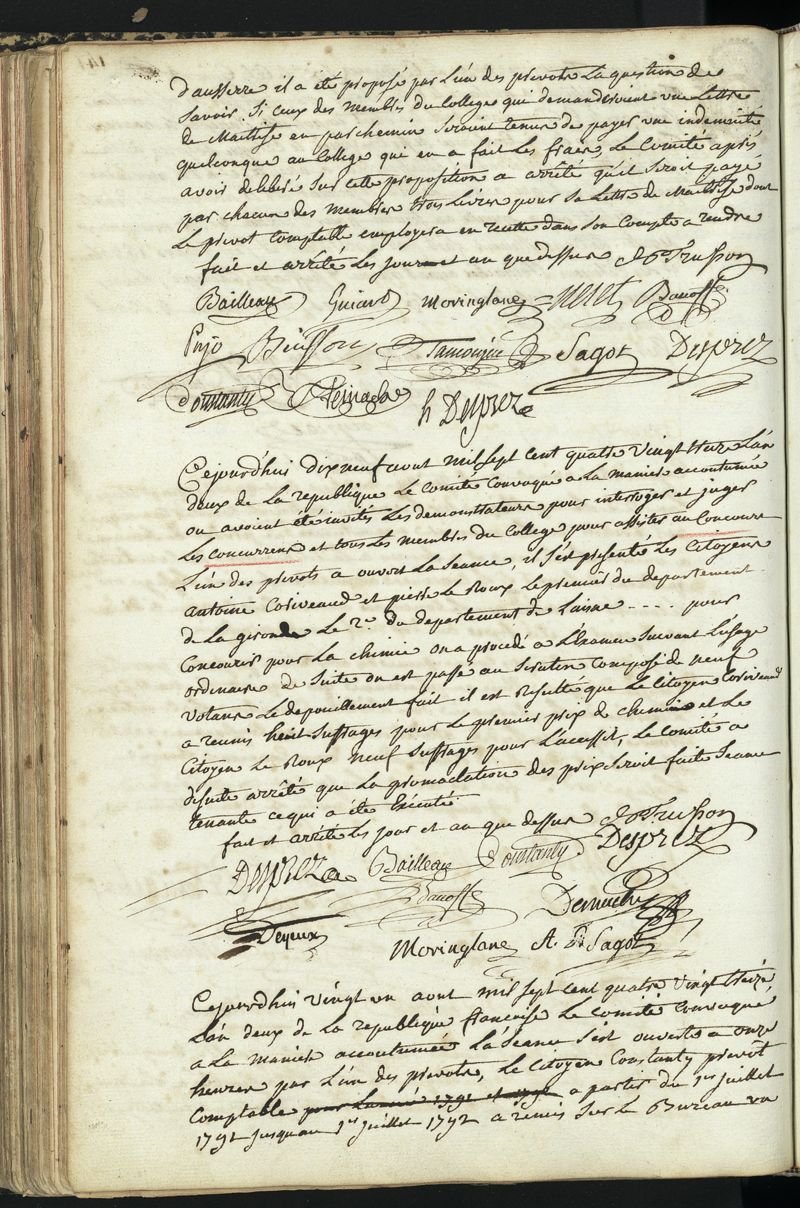 d'ausserre il a été proposé par l'un des prevots la question de
savoir si ceux des membres du College qui demanderoient une Lettre
de Maitrise en parchemin seroient tenus de payer une indemnité
quelconque au College qui en a fait les fraix, le Comité après
avoir deliberé sur cette proposition a arrêté qu'il seroit payé
par chacun des membres trois Livres pour sa Lettre de Maitrise dont
Le prevot Comptable employera en recette dans son Compte a rendre
fait et arrêté Les jour et an que dessus Trusson
Bailleau Guiard Moringlane Bacoffe
Pujo Buisson Tamoujin Sagot Desprez
Constanty h Desprez
Cejourd'hui dix neuf aout Mil sept cent quatre vingt treze L'an
deux de La republique Le Comité Convoqué a La maniere accoutumée
ou avoient été invités Les demonstrateurs pour interroger et juger
Les Concurrens et tous Les membres du College pour assister au Concours
L'un des prevots a ouvert La Seance, il s'est presenté Les Citoyens
antoine Coriveaud et pierre Le Roux Le premier du departement
de La gironde Le 2e du departement de L'aisne ..... pour
Concourir pour La chimie on a procedé a L'Examen Suivant L'usage
ordinaire de suite on est passé au Scrutin Composé de neuf
votans Le depouillement fait il est resulté que Le Citoyen Coriveaud
a reunis heuit suffrages pour Le premier prix de chimie et Le
Citoyen Le Roux neuf suffrages pour L'accessit, Le Comité a
desuite arrêté que La promaclation des prix seroit faite Seance
tenante ce qui a été Executé
fait et arrêté Les jour et an que dessus Trusson
Desprez Bailleau Constanty Desprez
Bacoffe Demachy
Deyeux Moringlane A. Sagot
Cejourd'hui vingt un aout mil sept cent quatre vingt treize,
L'an deux de La republique françoise Le Comité Convoqué
a La maniere accoutumée La Seance s'est ouverte a onze
heures par L'un des prevots, Le Citoyen Constanty prevôt
Comptable pour L'année 1791 et 1792 a partir du 1er juillet
1791 jusqu'au 1er juillet 1792 a remis sur Le Bureau un